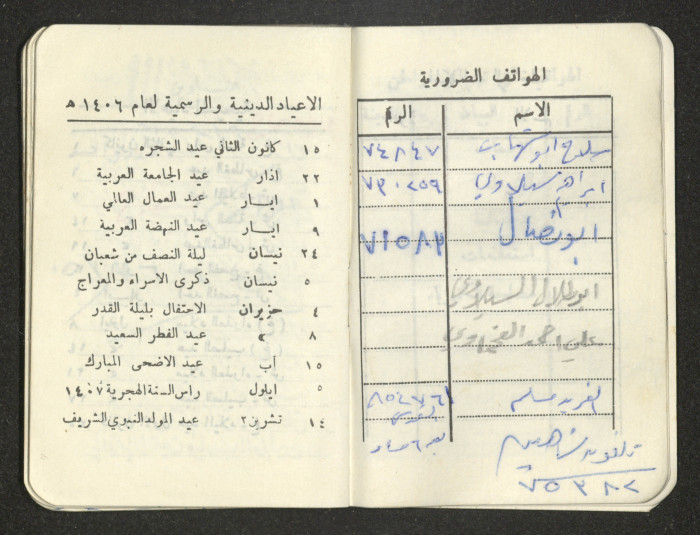 الهواتف الضرورية
الاسم الرقم
صلاح ابو شهاب ٧٤٨٤٧
ابراهيم ٧٣٠٢٥٩
ابو نضال ٧١٥٨٢
ابو طلال السيلاوي
علي احمد
مسلم ٨٥٤٧٦١
تلفون شاهين
٧٥٣٨٢
الاعياد الدينية والرسمية لعام ١٤٠٦ هـ
١٥ كانون الثاني عيد الشجره
٢٢ اذار عيد الجامعة العربية
١ ايــار عيد العمال العالمي
٩ ايــار عيد النهضة العربية
٢٤ نيسان ليلة النصف من شعبان
٥ نيسان ذكرى الاسراء والمعراج
٤ حزيران الاحتفال بليلة القدر
٨ » عيد الفطر السعيد
١٥ أب عيد الاضحى المبارك
٥ ايلول راس السنة الهجرية ١٤٠٧
١٤ تشرين ٢ عيد المولد النبوي الشريف